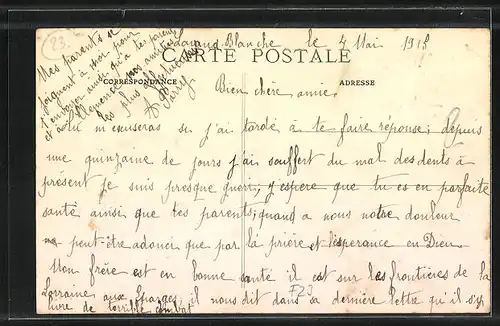 23.
Blanche le 4 Mai 1915
CARTE POSTALE
CORRESPONDANCE
ADRESSE
Bien chère amie,
Tu m'excuseras si j'ai tardé à te faire réponse; depuis
une quinzaine de jours j'ai souffert du mal des dents à
présent je suis presque guéri; j'espère que tu es en parfaite
santé ainsi que tes parents; quand a nous notre douleur
ne peut-être adouci que par la prière et l'espérance en Dieu
Mon frère est en bonne santé il est sur les frontières de la
Lorraine aux Eparges; il nous dit dans sa dernière lettre qu'il s'y
livre de terrible combat
F23
Mes parents se
joignent à moi pour
t'embrasser ainsi que tes parents
et à Clémence nos amitiés
les plus